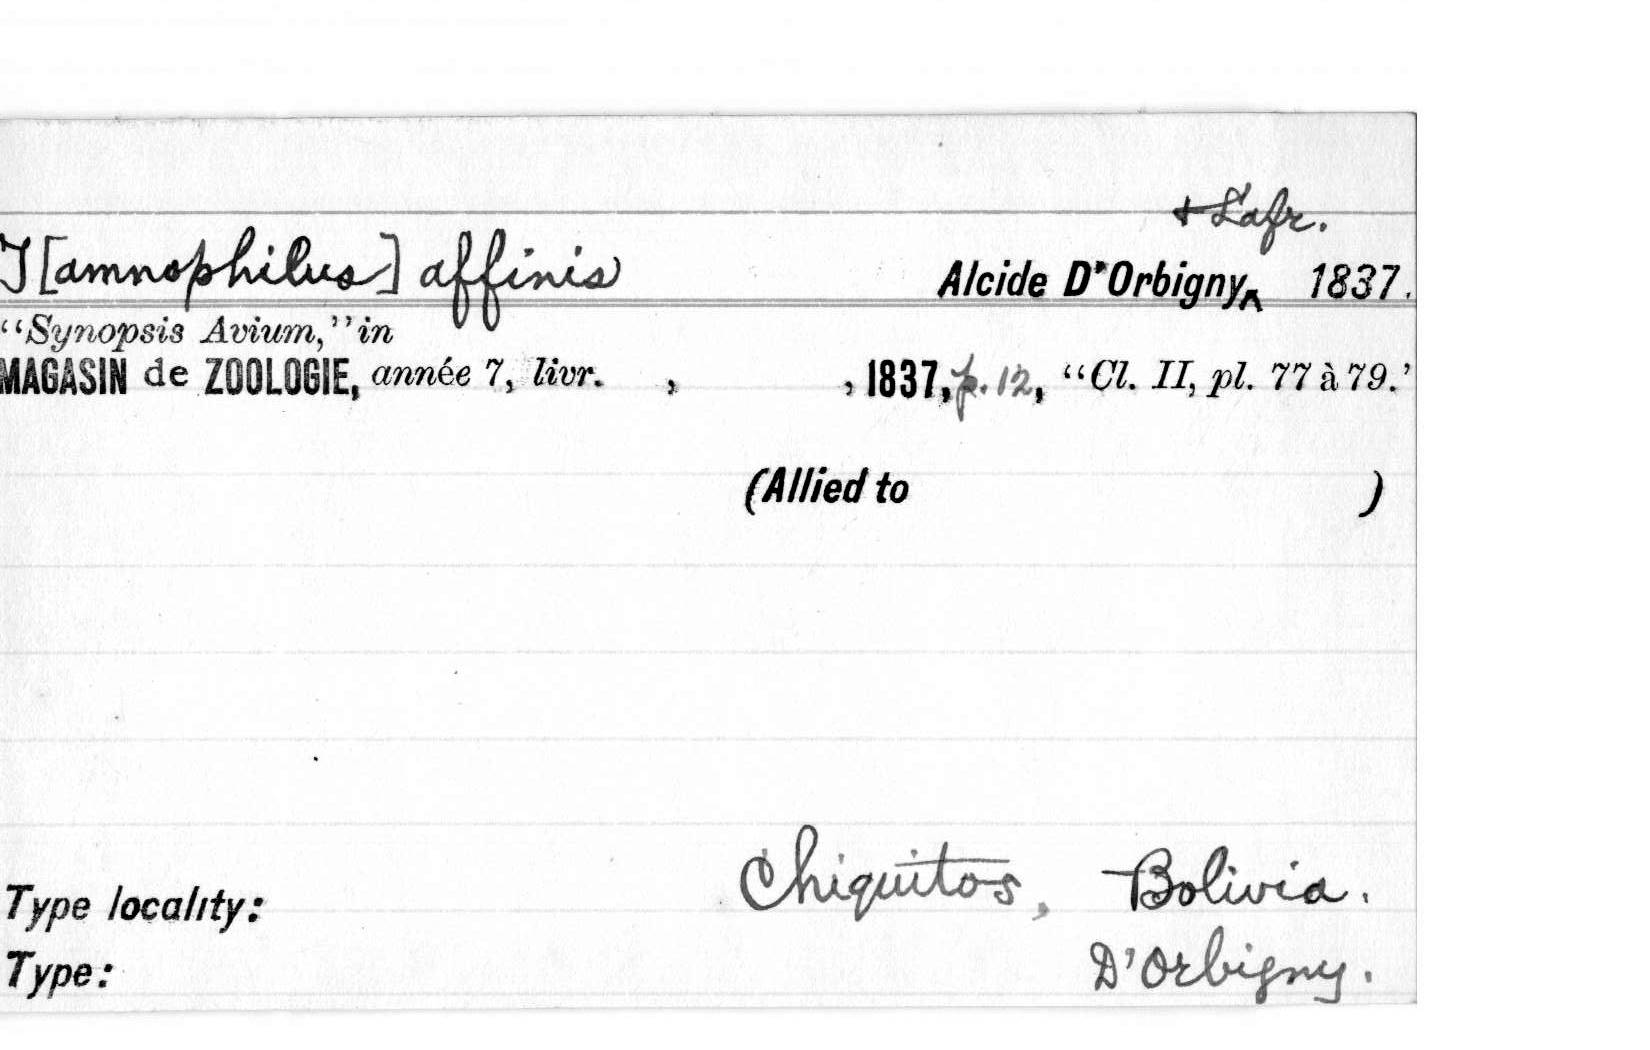 & Lafr.
T[amnophilus] affinis Alcide D'Orbigny‸ 1837.
"Synopsis Avium," in
MAGASIN de ZOOLOGIE, année 7, livr. , , 1837, p. 12, "Cl. II, pl. 77 à 79.'
(Allied to )
Type locality: Chiquitos, Bolivia.
Type: D'Orbigny.